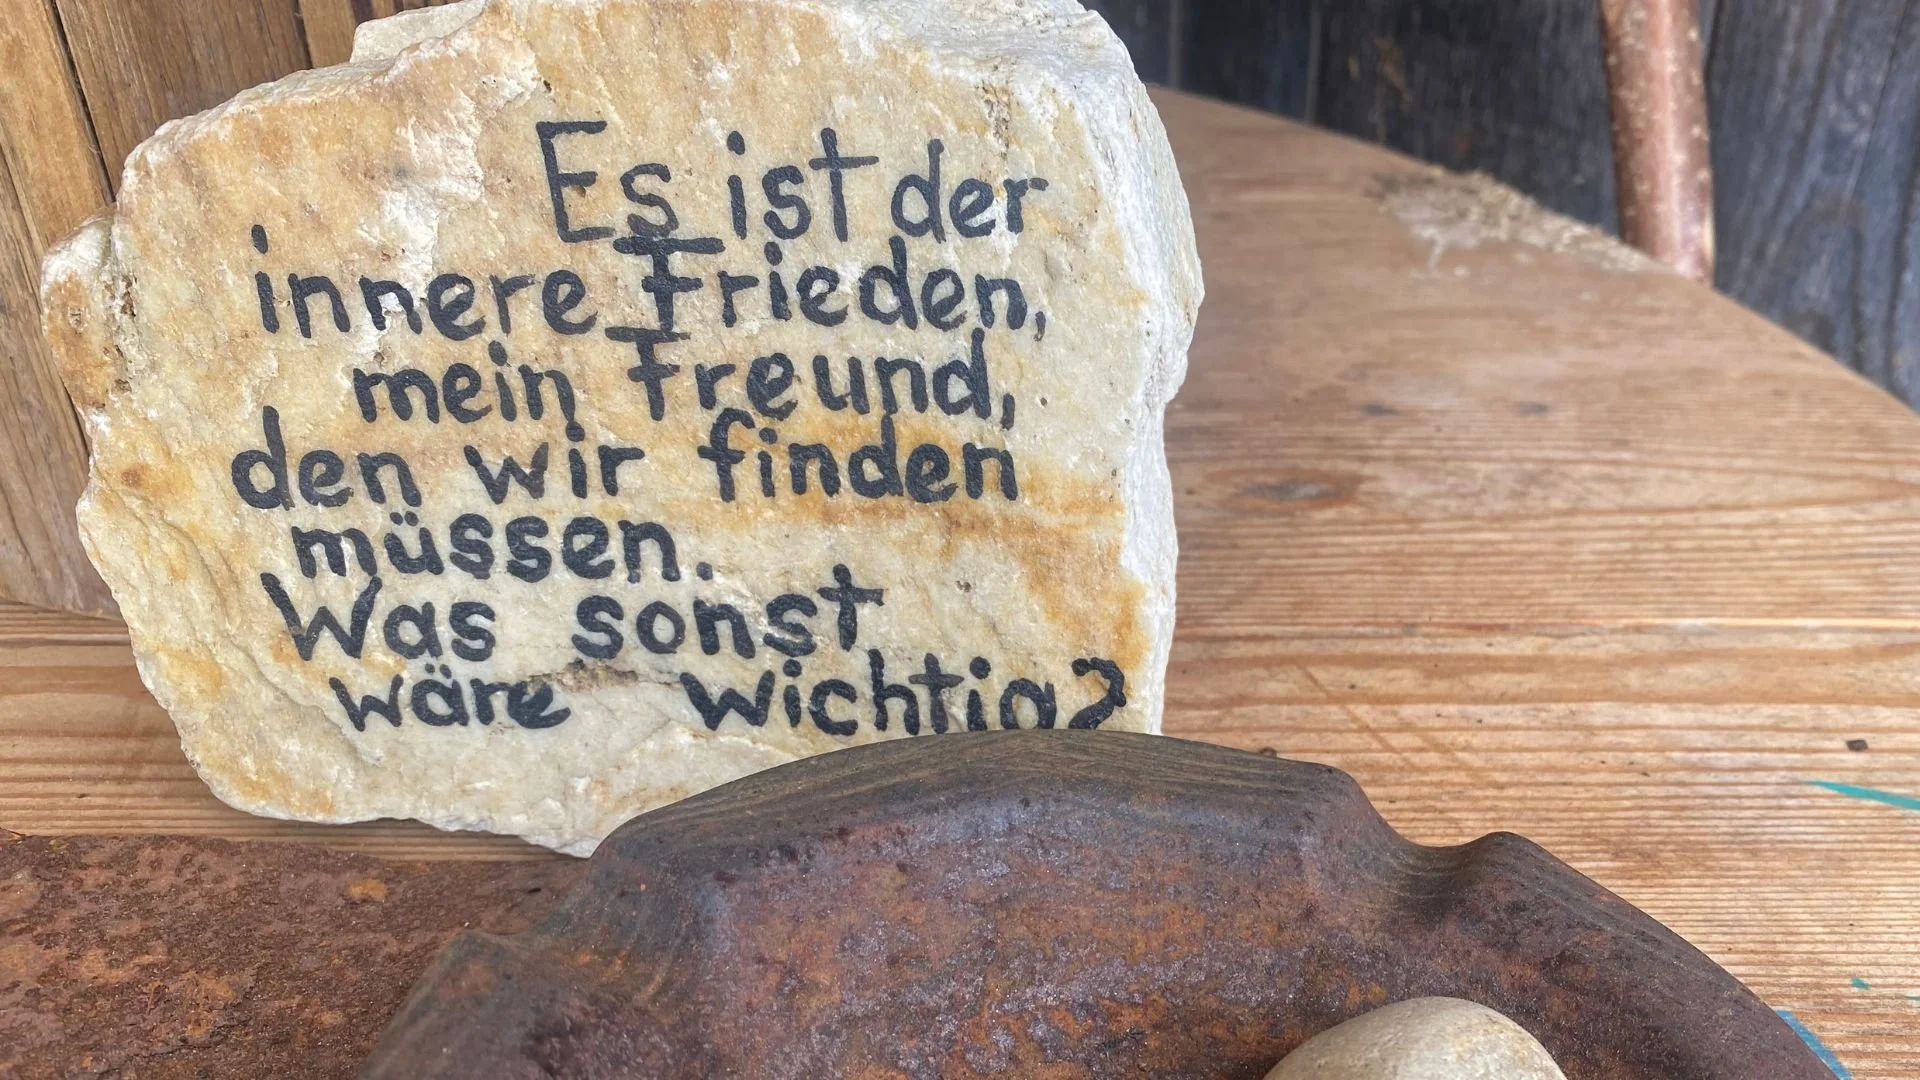 Es ist der
innere Frieden,
mein Freund,
den wir finden
müssen.
Was sonst
wäre wichtig?